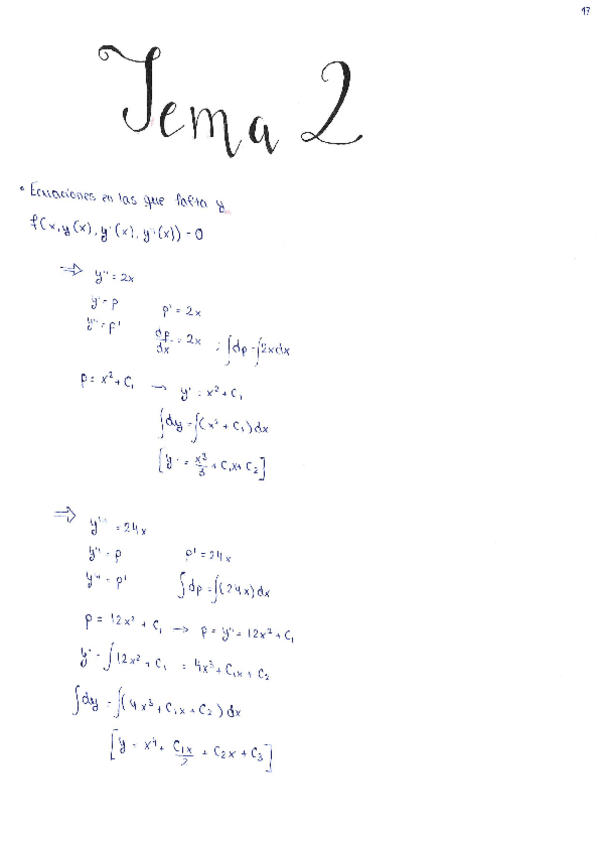 17
Tema 2
• Ecuaciones en las que falta y
f(x, y(x), y'(x), y''(x)) = 0
⇒ y'' = 2x
y' = p p' = 2x
y'' = p' dp/dx = 2x ; ∫dp = ∫2xdx
p = x² + C₁ → y' = x² + C₁
∫dy = ∫(x² + C₁)dx
[y = x³/3 + C₁x + C₂]
⇒ y''' = 24x
y'' = p p' = 24x
y''' = p' ∫dp = ∫(24x)dx
p = 12x² + C₁ → p = y'' = 12x² + C₁
y' = ∫12x² + C₁ = 4x³ + C₁x + C₂
∫dy = ∫(4x³ + C₁x + C₂)dx
[y = x⁴ + C₁x/2 + C₂x + C₃]